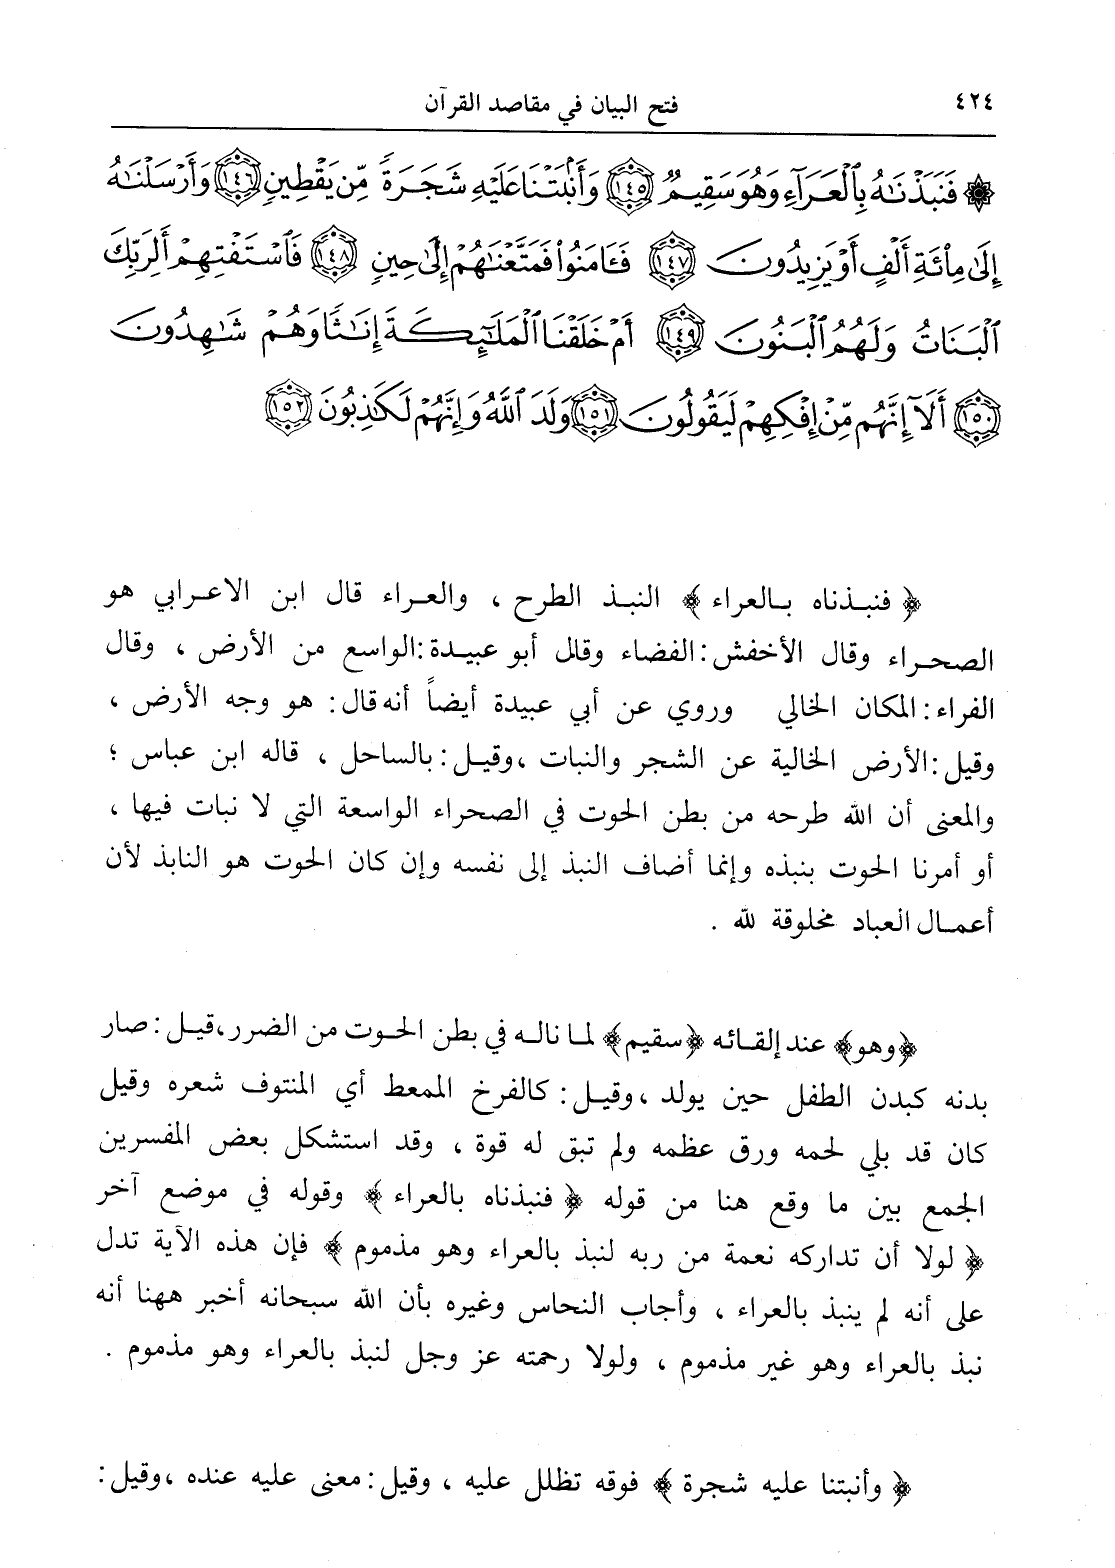 ٤٢٤ فتح البيان في مقاصد القرآن
۞ فَنَبَذْنَٰهُ بِٱلْعَرَآءِ وَهُوَ سَقِيمٌ ١٤٥ وَأَنۢبَتْنَا عَلَيْهِ شَجَرَةً مِّن يَقْطِينٍ ١٤٦ وَأَرْسَلْنَٰهُ
إِلَىٰ مِا۟ئَةِ أَلْفٍ أَوْ يَزِيدُونَ ١٤٧ فَـَٔامَنُوا۟ فَمَتَّعْنَٰهُمْ إِلَىٰ حِينٍ ١٤٨ فَٱسْتَفْتِهِمْ أَلِرَبِّكَ
ٱلْبَنَاتُ وَلَهُمُ ٱلْبَنُونَ ١٤٩ أَمْ خَلَقْنَا ٱلْمَلَٰٓئِكَةَ إِنَٰثًا وَهُمْ شَٰهِدُونَ
١٥٠ أَلَآ إِنَّهُم مِّنْ إِفْكِهِمْ لَيَقُولُونَ ١٥١ وَلَدَ ٱللَّهُ وَإِنَّهُمْ لَكَٰذِبُونَ ١٥٢
﴿ فنبذناه بالعراء ﴾ النبذ الطرح ، والعراء قال ابن الاعرابي هو
الصحراء وقال الأخفش : الفضاء وقال أبو عبيدة : الواسع من الأرض ، وقال
الفراء : المكان الخالي وروي عن أبي عبيدة أيضاً أنه قال : هو وجه الأرض ،
وقيل : الأرض الخالية عن الشجر والنبات ، وقيل : بالساحل ، قاله ابن عباس ؛
والمعنى أن الله طرحه من بطن الحوت في الصحراء الواسعة التي لا نبات فيها ،
أو أمرنا الحوت بنبذه وإنما أضاف النبذ إلى نفسه وإن كان الحوت هو النابذ لأن
أعمال العباد مخلوقة لله .
﴿وهو﴾ عند إلقائه ﴿سقيم﴾ لما ناله في بطن الحوت من الضرر ، قيل : صار
بدنه كبدن الطفل حين يولد ، وقيل : كالفرخ الممعط أي المنتوف شعره وقيل
كان قد بلي لحمه ورق عظمه ولم تبق له قوة ، وقد استشكل بعض المفسرين
الجمع بين ما وقع هنا من قوله ﴿ فنبذناه بالعراء ﴾ وقوله في موضع آخر
﴿ لولا أن تداركه نعمة من ربه لنبذ بالعراء وهو مذموم ﴾ فإن هذه الآية تدل
على أنه لم ينبذ بالعراء ، وأجاب النحاس وغيره بأن الله سبحانه أخبر ههنا أنه
نبذ بالعراء وهو غير مذموم ، ولولا رحمته عز وجل لنبذ بالعراء وهو مذموم .
﴿ وأنبتنا عليه شجرة ﴾ فوقه تظلل عليه ، وقيل : معنى عليه عنده ، وقيل :